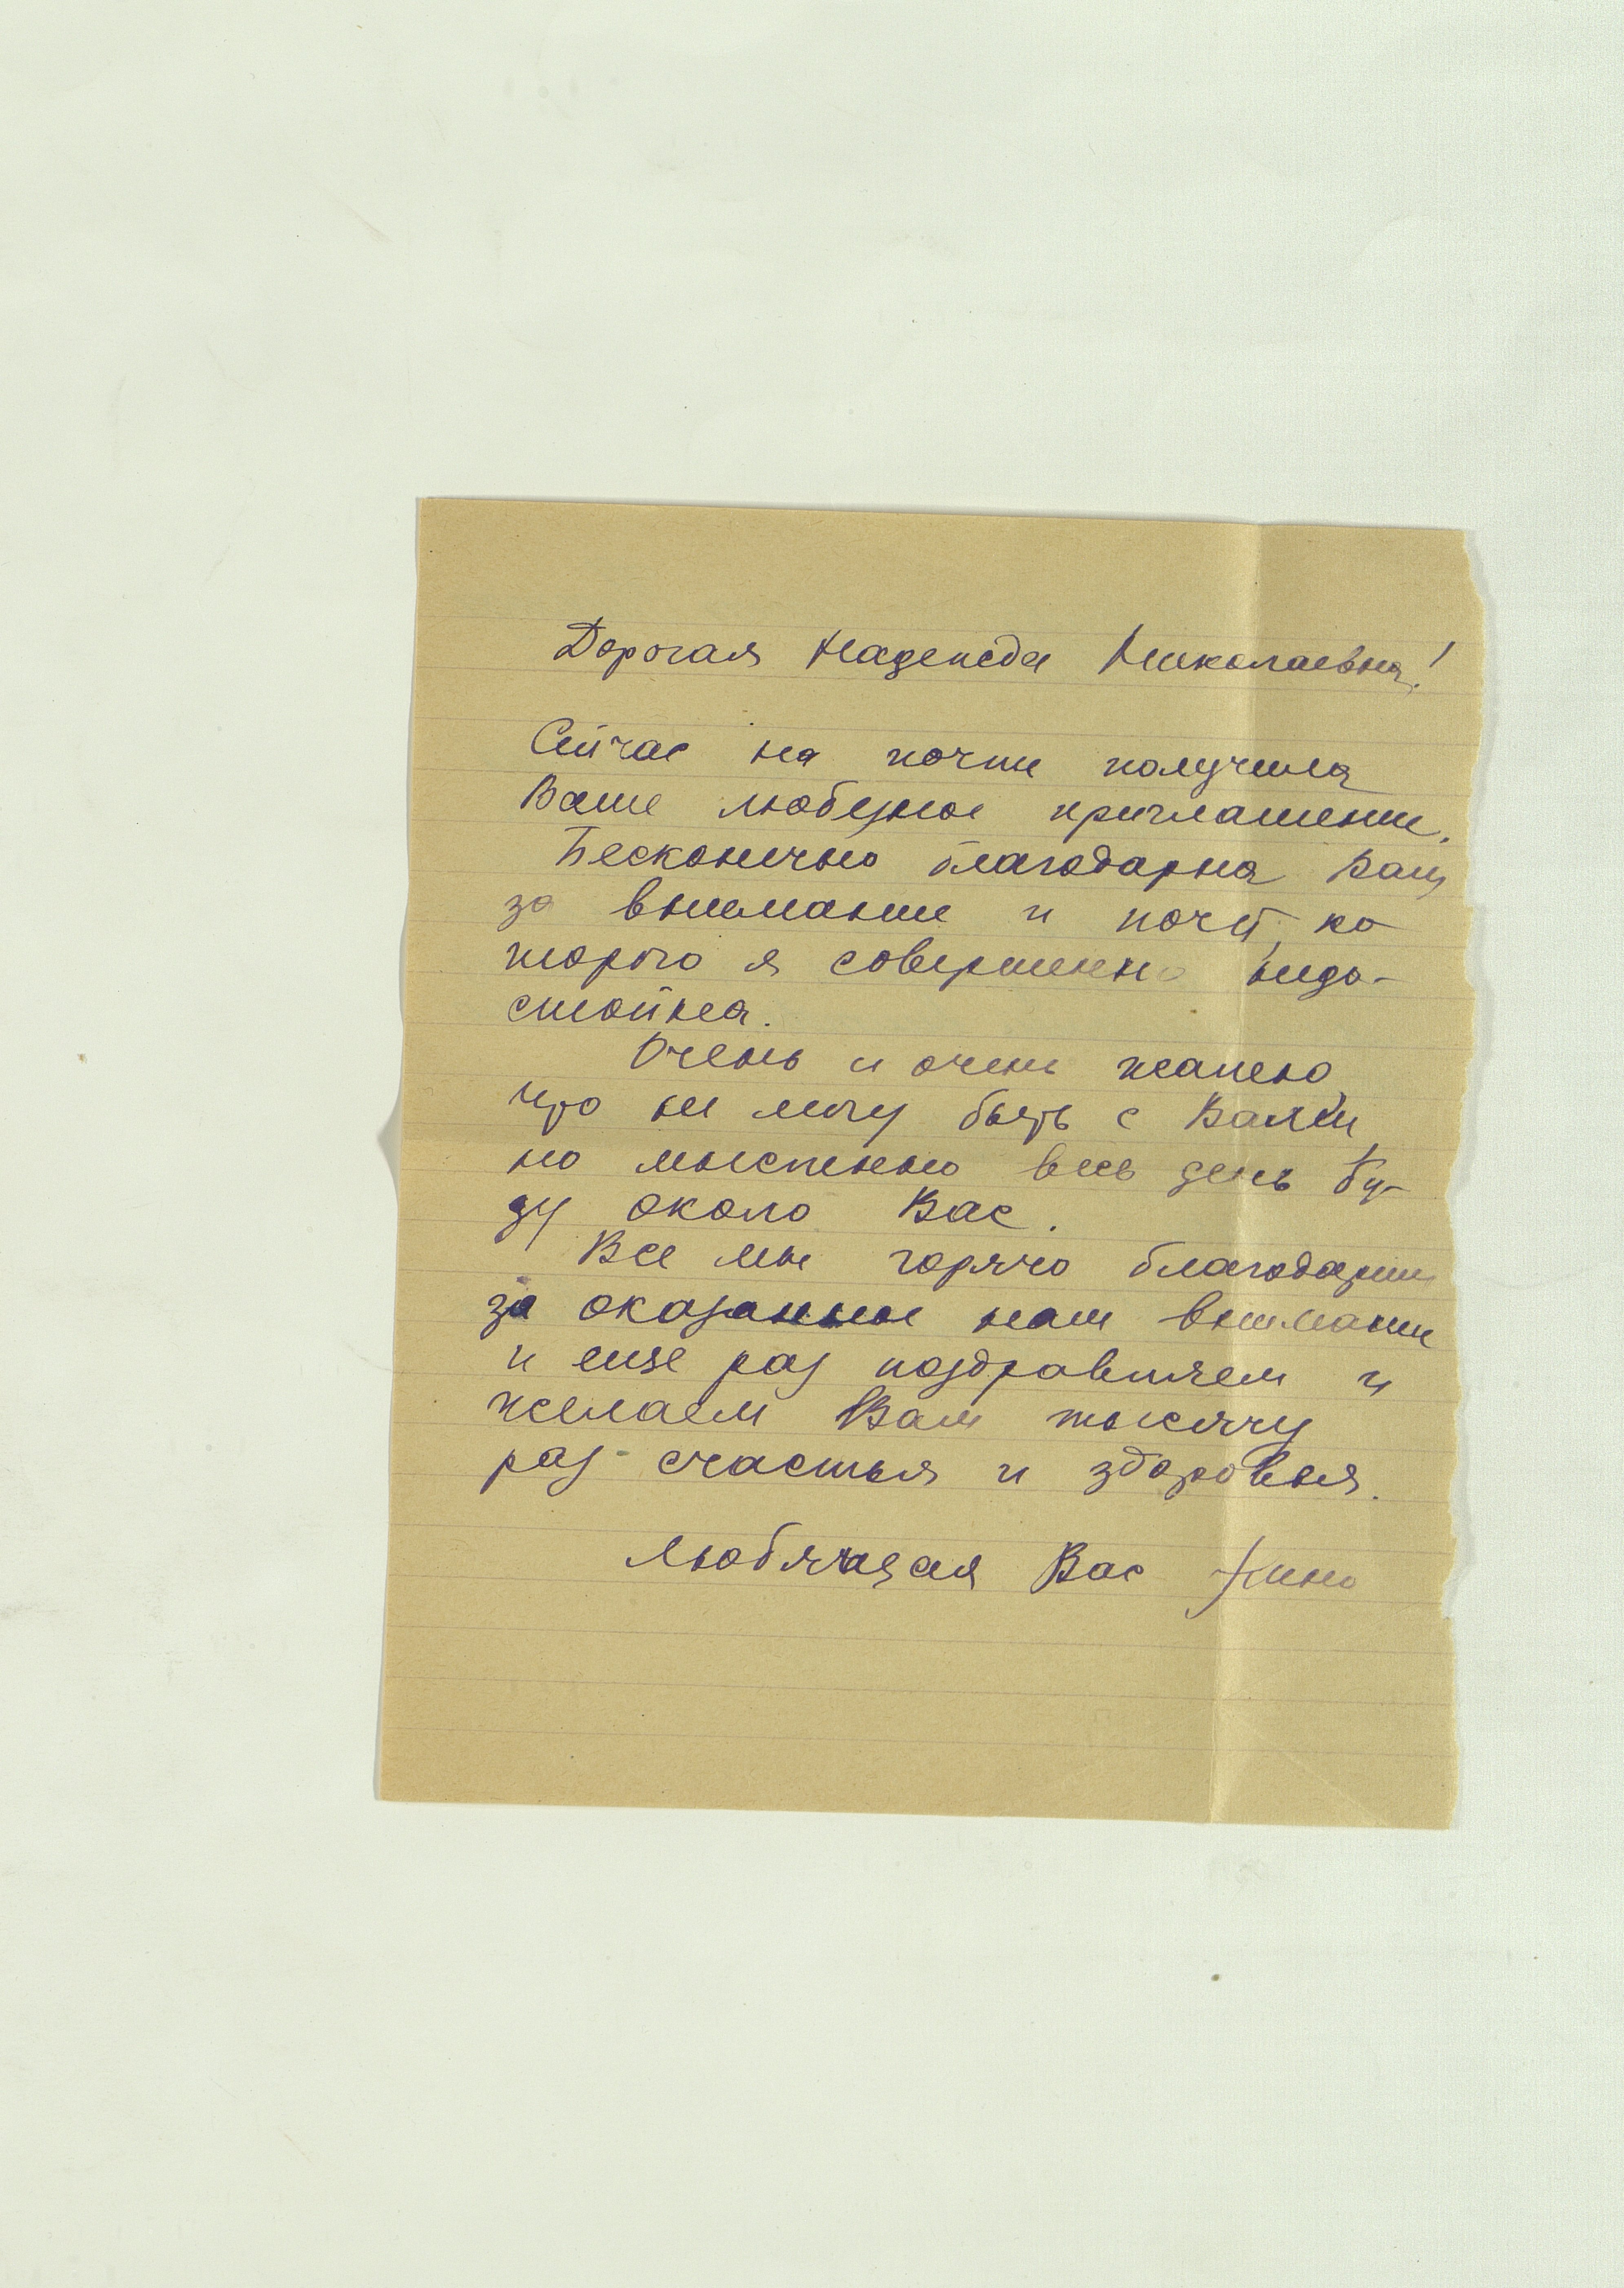 Дорогая Надежда Николаевна!
Сейчас на почте получила
Ваше любезное приглашение.
Бесконечно благодарна Вам
за внимание и почет, ко
торого я совершенно недо-
стойна.
Очень и очень жалею,
что не могу быть с Вами,
но мысленно весь день бу-
ду около Вас.
Все мы горячо благодарим
за оказанное нам внимание
и еще раз поздравляем и
желаем Вам тысячу
раз счастья и здоровья.
Любящая Вас Нино